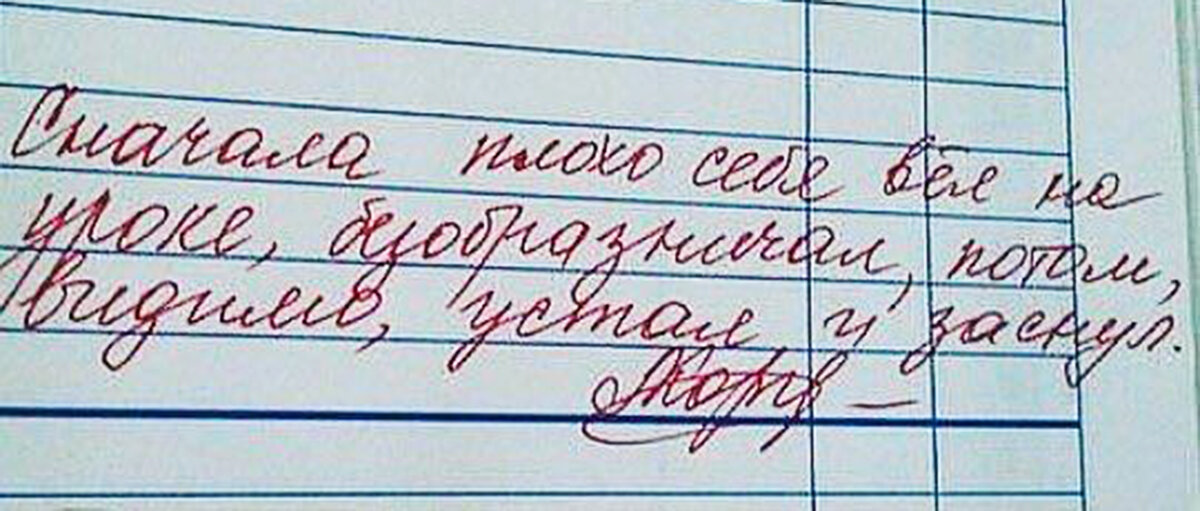 Сначала плохо себя вёл на
уроке, безобразничал, потом,
видимо, устал и заснул.